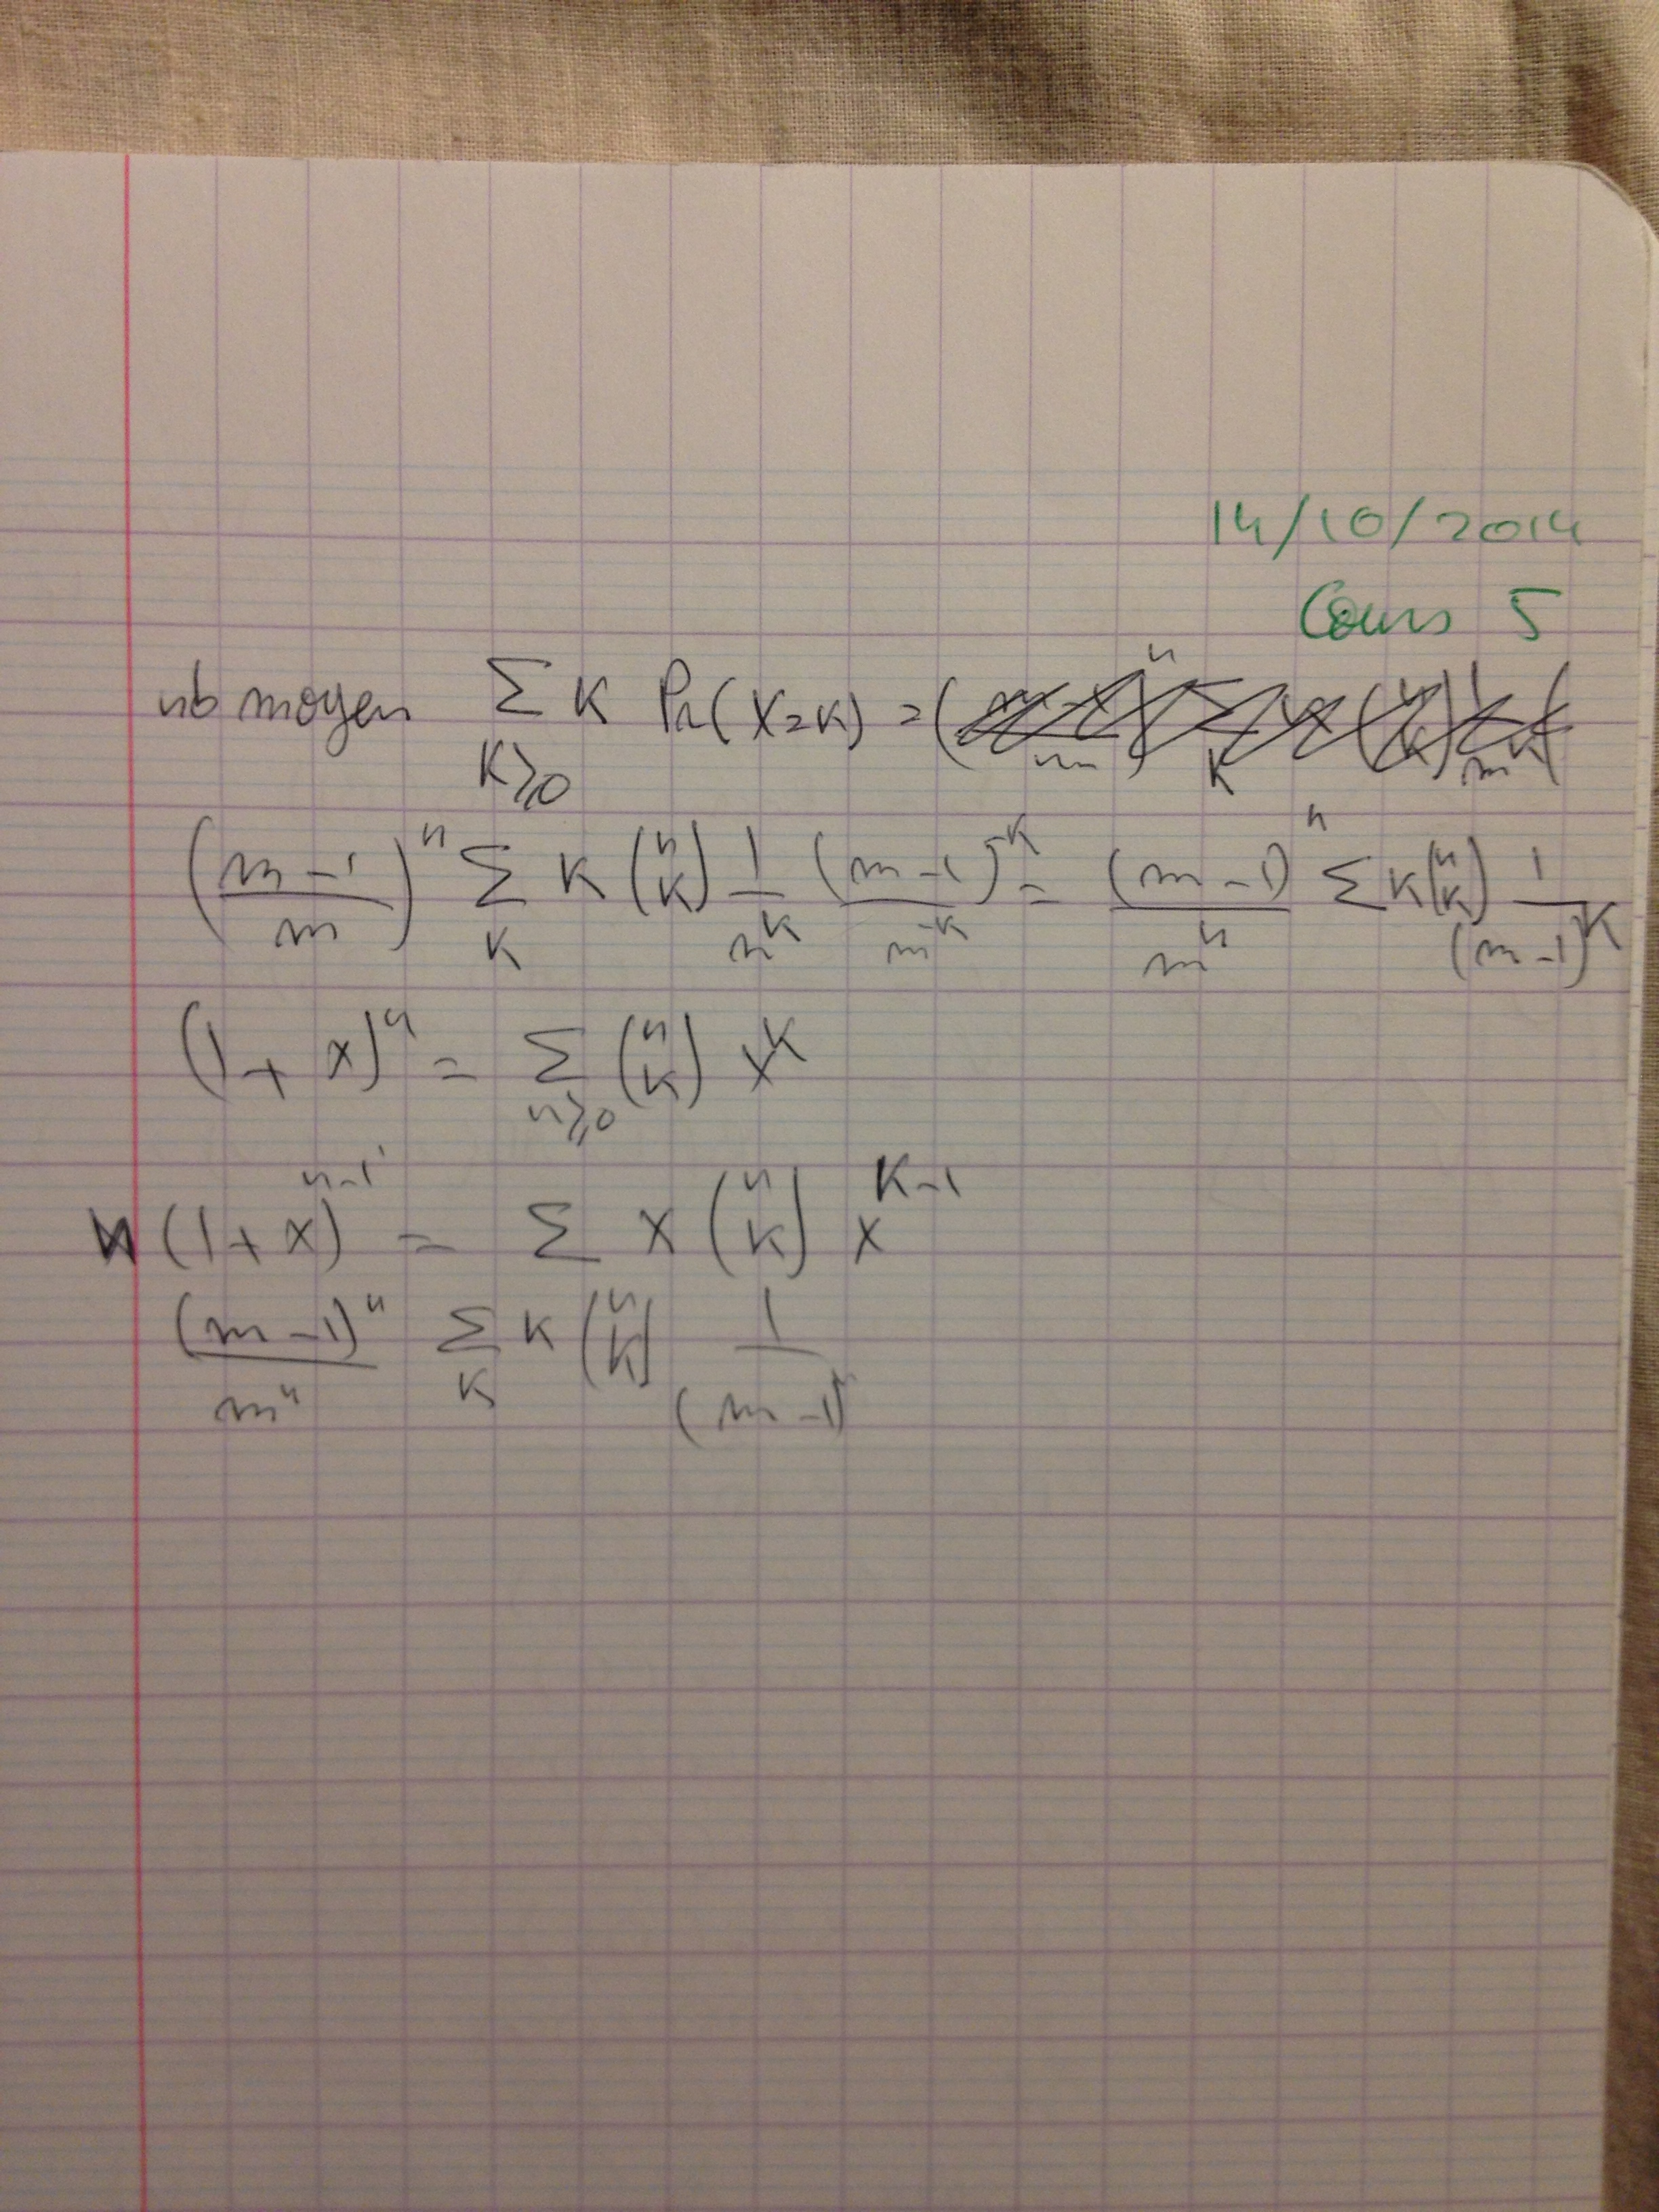 14/10/2014
Cours 5
nb moyen Σ_{K≥0} K Pr(X=K) = (
((m-1)/m)^n Σ_K K (n K) 1/m^K (m-1)^{-K}/m^{-K} = (m-1)^n/m^n Σ K (n K) 1/(m-1)^K
(1+x)^n = Σ_{n≥0} (n K) x^K
n(1+x)^{n-1} = Σ X (n K) x^{K-1}
(m-1)^n/m^n Σ_K K (n K) 1/(m-1)